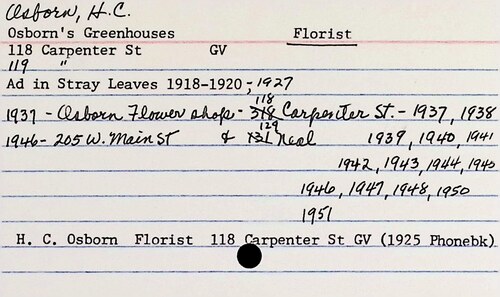 Osborn, H.C.
Osborn's Greenhouses Florist
118 Carpenter St GV
119 "
Ad in Stray Leaves 1918-1920, -1927
1937 - Osborn Flower shop - 318 118 Carpenter St. - 1937, 1938
1946 - 205 W. Main St & 131 129 Neal 1939, 1940, 1941
1942, 1943, 1944, 1945
1946, 1947, 1948, 1950
1951
H. C. Osborn Florist 118 Carpenter St GV (1925 Phonebk)